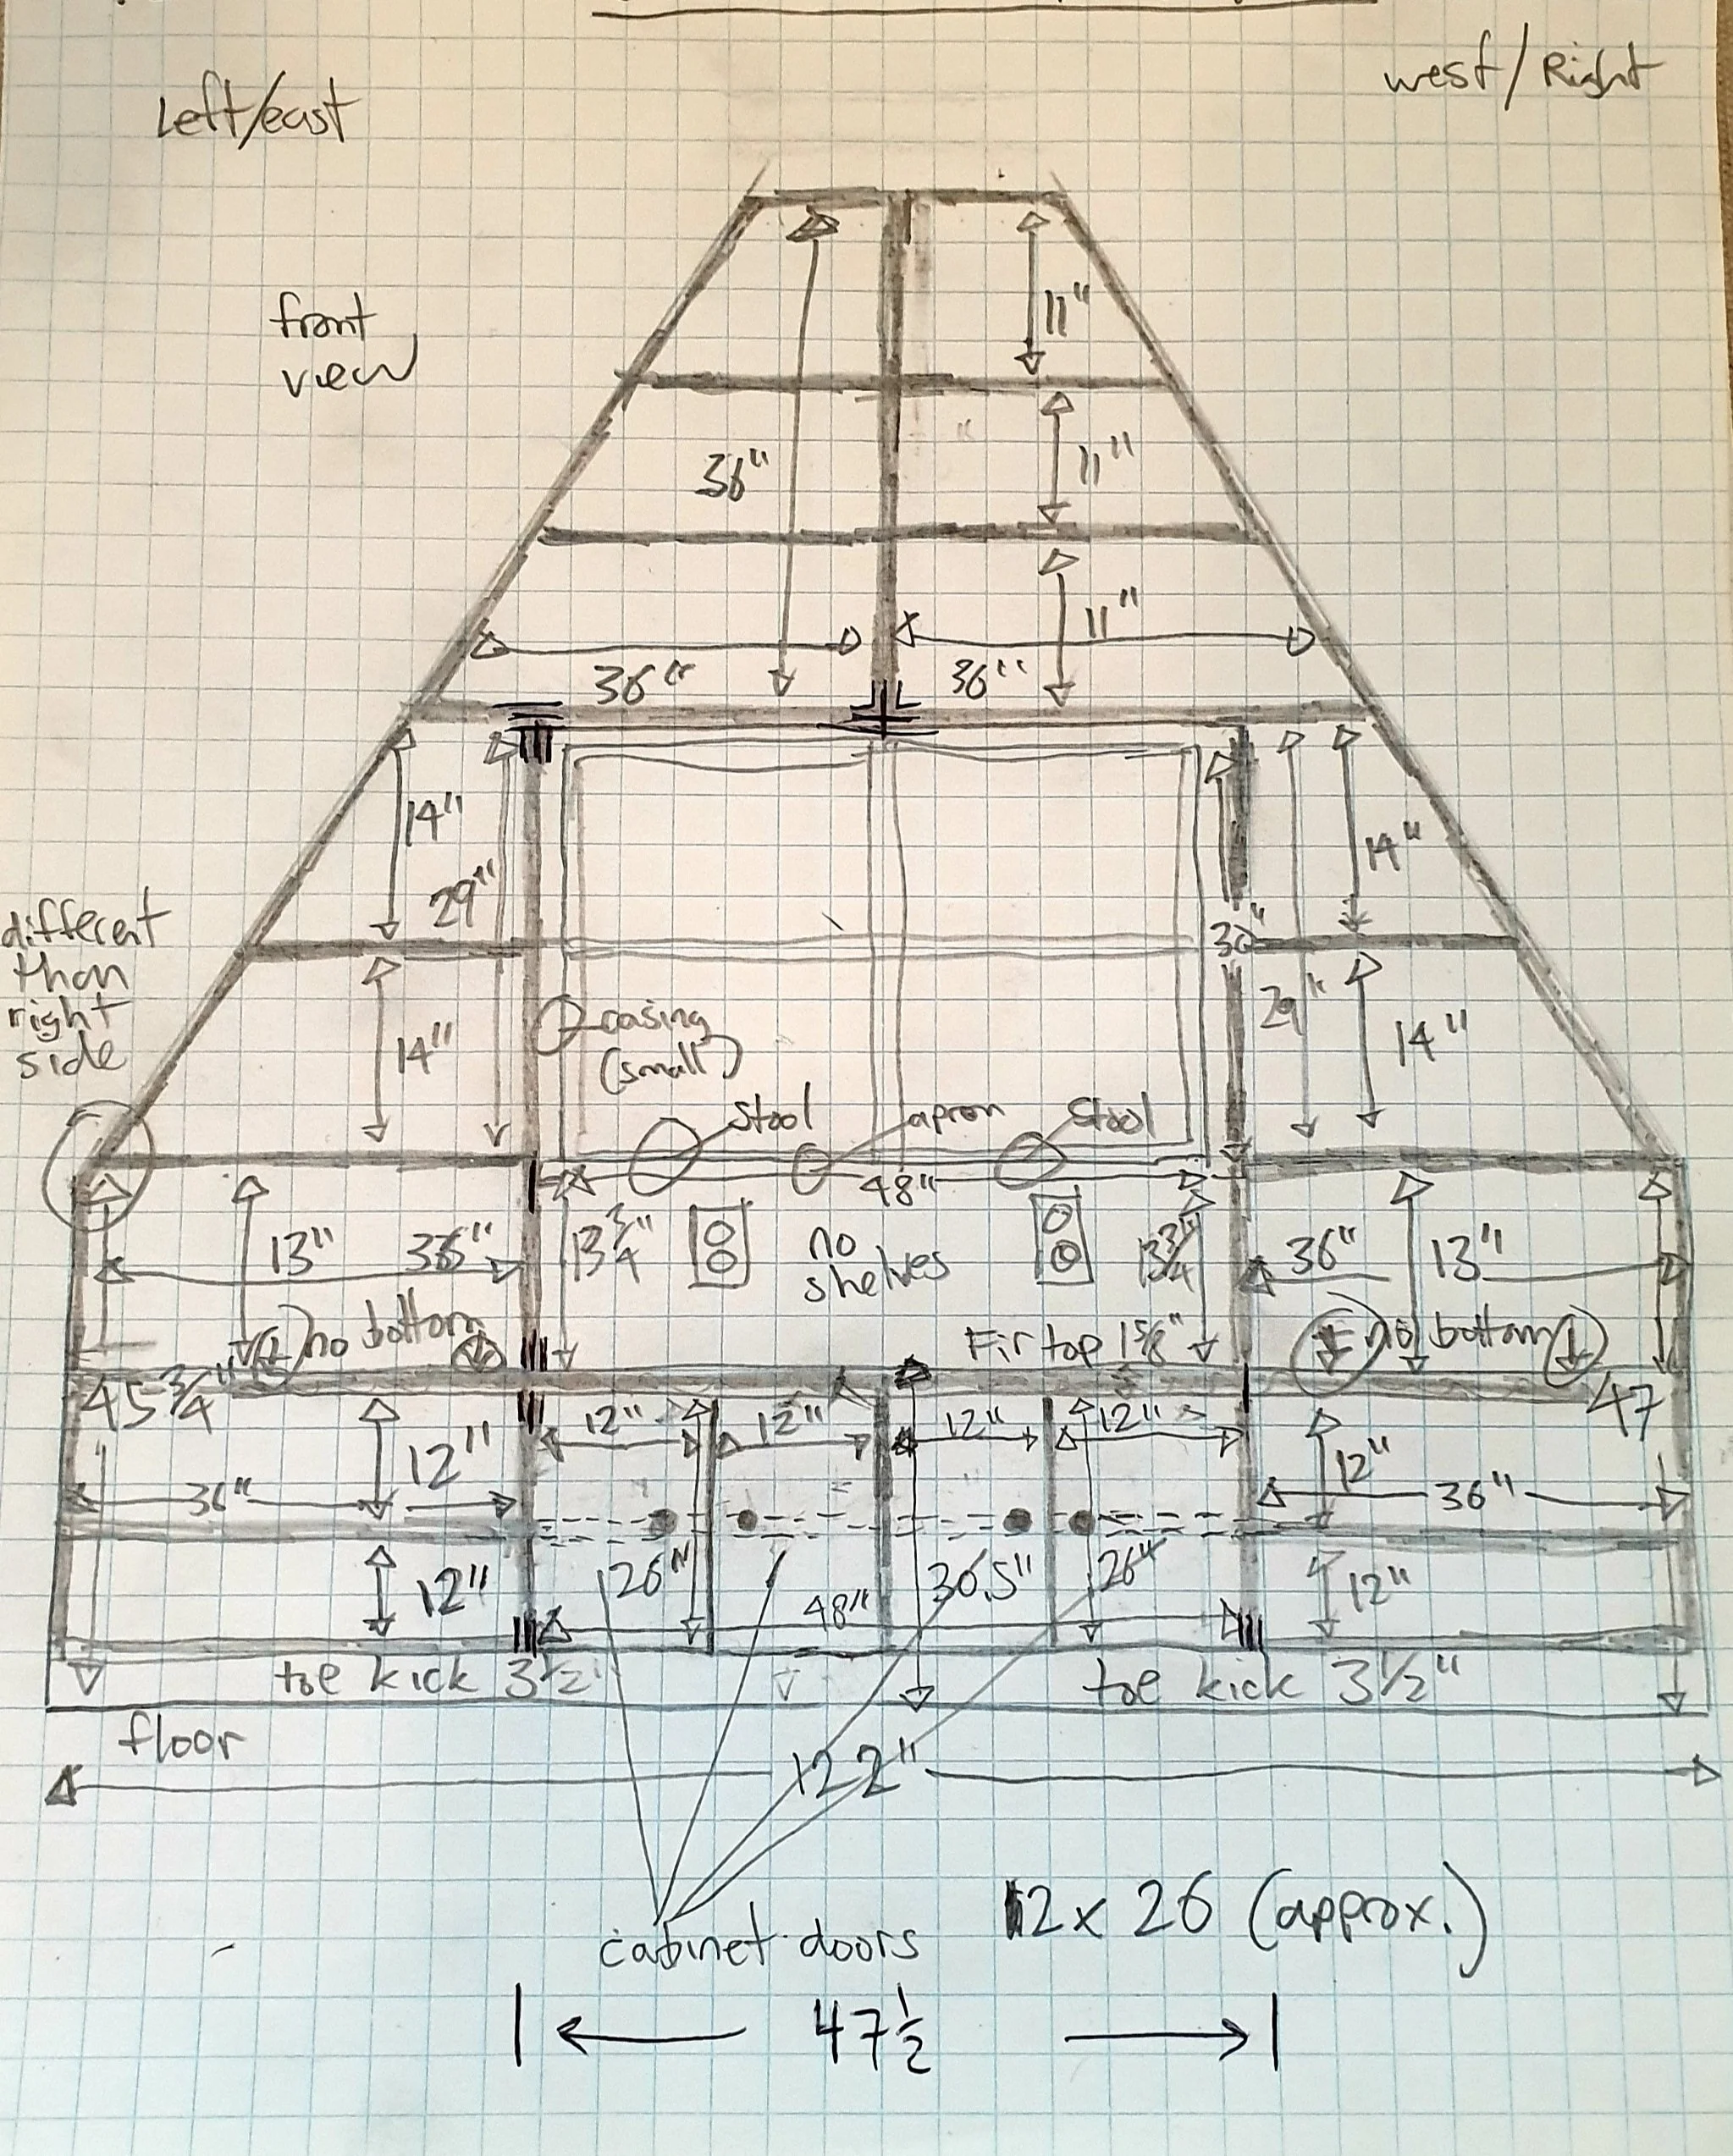 Left/east
west/Right
front
view
11"
36"
11"
11"
36"
36"
14"
29"
14"
different
than
right
side
30"
casing
(small)
29"
14"
14"
stool
apron
stool
48"
13"
36"
13 3/4"
no
shelves
13 3/4"
36"
13"
no bottom
Fir top 1 5/8"
no bottom
45 3/4"
47
12"
12"
12"
12"
12"
12"
36"
36"
12"
26"
48"
30.5"
26"
12"
toe kick 3 1/2"
toe kick 3 1/2"
floor
122"
cabinet doors
12 x 26 (approx.)
47 1/2